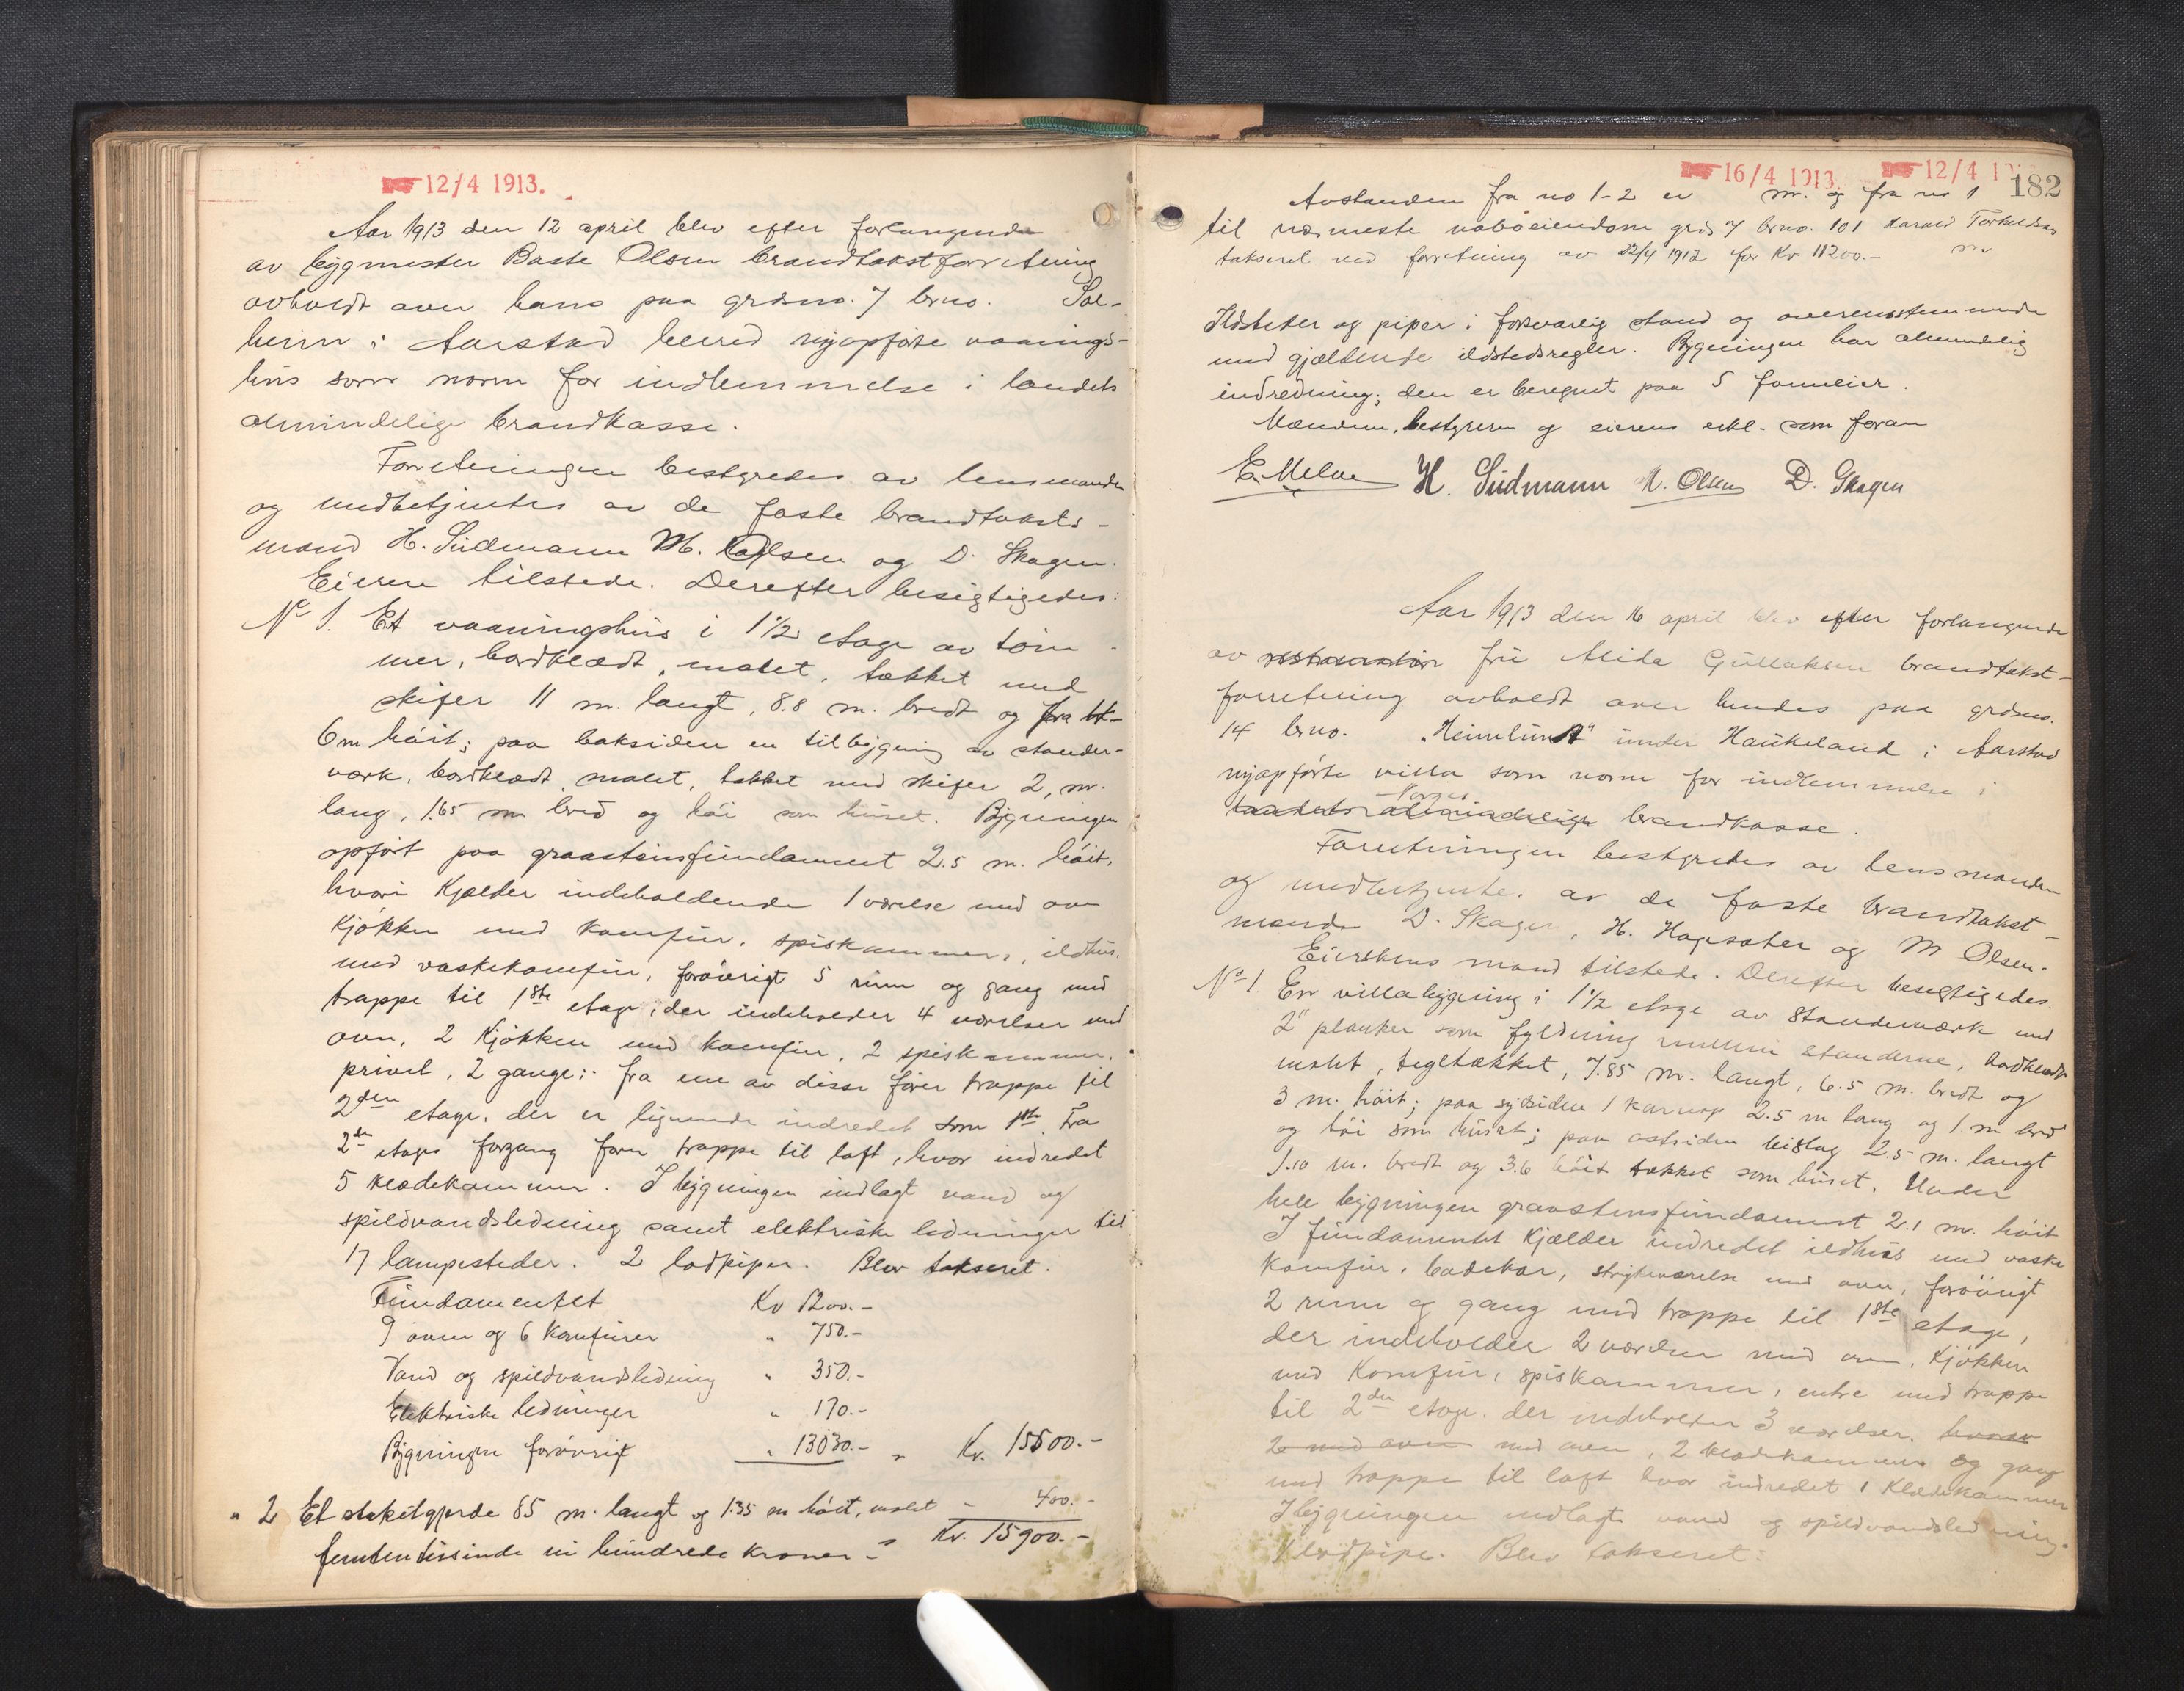 12/4 1913.
Aar 1913 den 12 april blev efter forlangende
av bygmester Baste Olsen brandtakstforretning
avholdt over hans paa grdsno. 7 brno. Sol-
heim i Aarstad herred nyopførte vaanings-
hus som norm for indlemmelse i landets
almindelige brandkasse.
Forretningen bestyredes av lensmanden
og medbetjentes av de faste brandtaksts-
mænd H. Südmann M. Olsen og D. Skagen.
Eieren tilstede. Derefter besigtigedes:
No 1. Et vaaningshus i 1 1/2 etage av tøm-
mer, bordklædt, malet, tækket med
skifer 11 m. langt, 8.8 m. bredt og
6 m høit; paa baksiden en tilbygning av stander-
værk, bordklædt, malet, tækket med skifer 2, m.
lang, 1.65 m bred og høi som huset. Bygningen
opført paa graastensfundament 2.5 m. høit,
hvori Kjælder indeholdende 1 værelse med ovn
Kjøkken med Komfur, spiskammer, ildhus,
med vaskekomfur, forøvrigt 5 rum og gang med
trappe til 1ste etage, der indeholder 4 værelser med
ovn, 2 Kjøkken med komfur, 2 spiskammer,
privet, 2 gange; fra en av disse fører trappe til
2den etage, der er lignende indredet som 1ste. Fra
2den etages forgang fører trappe til loft, hvor indredet
5 klædekammer. I bygningen indlagt vand og
spildvandsledning samt elektriske ledninger til
17 lampesteder. 2 lodpiper. Blev takseret.
Fundamentet Kr 1200.-
9 ovne og 6 Komfurer " 750.-
Vand og spildvandsledning " 350.-
Elektriske ledninger " 170.-
Bygningen forøvrigt " 13030.- " Kr. 15500.-
" 2 Et stakitgjerde 85 m. langt og 1.35 m høit, malet - 400.-
femten tusinde ni hundrede kroner = Kr. 15900.-
16/4 1913 12/4 182
Avstanden fra no 1-2 er m. og fra no 1
til nærmeste naboeiendom grds 7 brno. 101 Harald Torkildsen
takseret ved forretning av 22/4 1912 for Kr 11200.- m
Ildsteder og piper i forsvarlig stand og overensstemmende
med gjældende ildstedsregler. Bygningen har almindelig
indredning; den er beregnet paa 5 familier.
Mændene, bestyreren og eierens erkl. som foran
E. Melve H. Südmann M. Olsen D. Skagen
Aar 1913 den 16 april blev efter forlangende
av fru Alida Gullaksen brandtakst-
forretning avholdt over hendes paa grdsno.
14 brno. "Heimlund" under Haukeland i Aarstad
nyopførte villa som norm for indlemmelse i
Norges
landets almindelige brandkasse.
Forretningen bestyredes av lensmanden
og medbetjentes av de faste brandtakst-
mænd D. Skagen, H. Hopsæter og M Olsen.
Eierskens mand tilstede. Derefter besigtigedes.
No 1. En villabygning i 1 1/2 etage av Standerværk med
2" planker som fyldning mellem standerne, bordklædt
malet, tegltækket, 7.85 m. langt, 6.5 m. bredt og
3 m. høit; paa sydsiden 1 karnap 2.5 m lang og 1 m bred
og høi som huset; paa østsiden bislag 2.5 m. langt
1.10 m. bredt og 3.6 høit tækket som huset. Under
hele bygningen graastensfundament 2.1 m. høit
I fundamentet Kjælder indredet ildhus med vaske
Komfur, badekar, strykeværelse med ovn, forøvrigt
2 rum og gang med trappe til 1ste etage,
der indeholder 2 værelser med ovn, Kjøkken
med Komfur, spiskammer, entre med trappe
til 2den etage, der indeholder 3 værelser, hvorav
2 med ovn med ovn, 2 klædekammer og gang
med trappe til loft hvor indredet 1 Klædekammer
I bygningen indlagt vand og spildvandsledning.
1 lodpipe. Blev takseret: